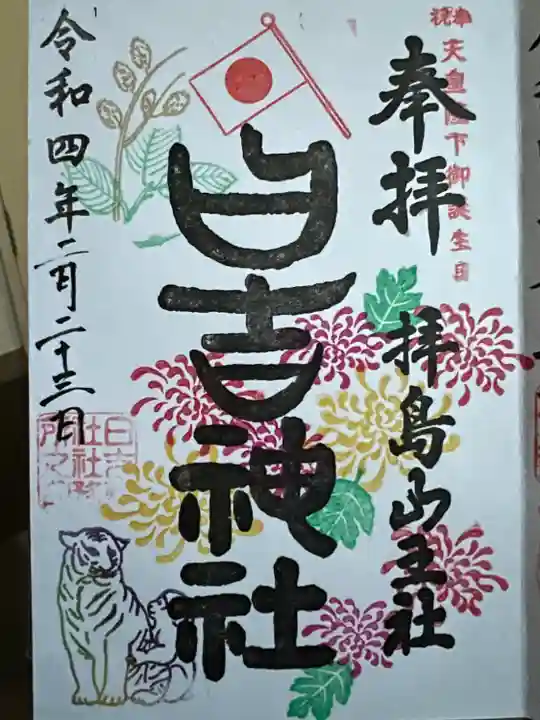 奉祝 天皇陛下御誕生日
奉拝 拝島山王社
日吉神社
令和四年二月二十三日